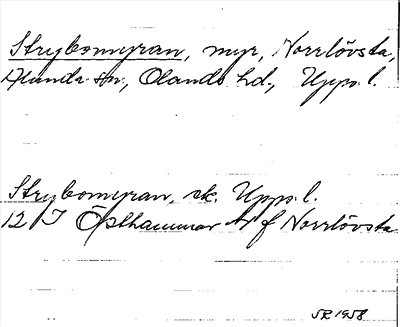 Strybomyran, myr, Norrlövsta,
Alunda sn, Olands hd., Upps. l.
Strybomyran, sk. Upps. l.
12 I Östhammar NV f Norrlövsta
SR 1958